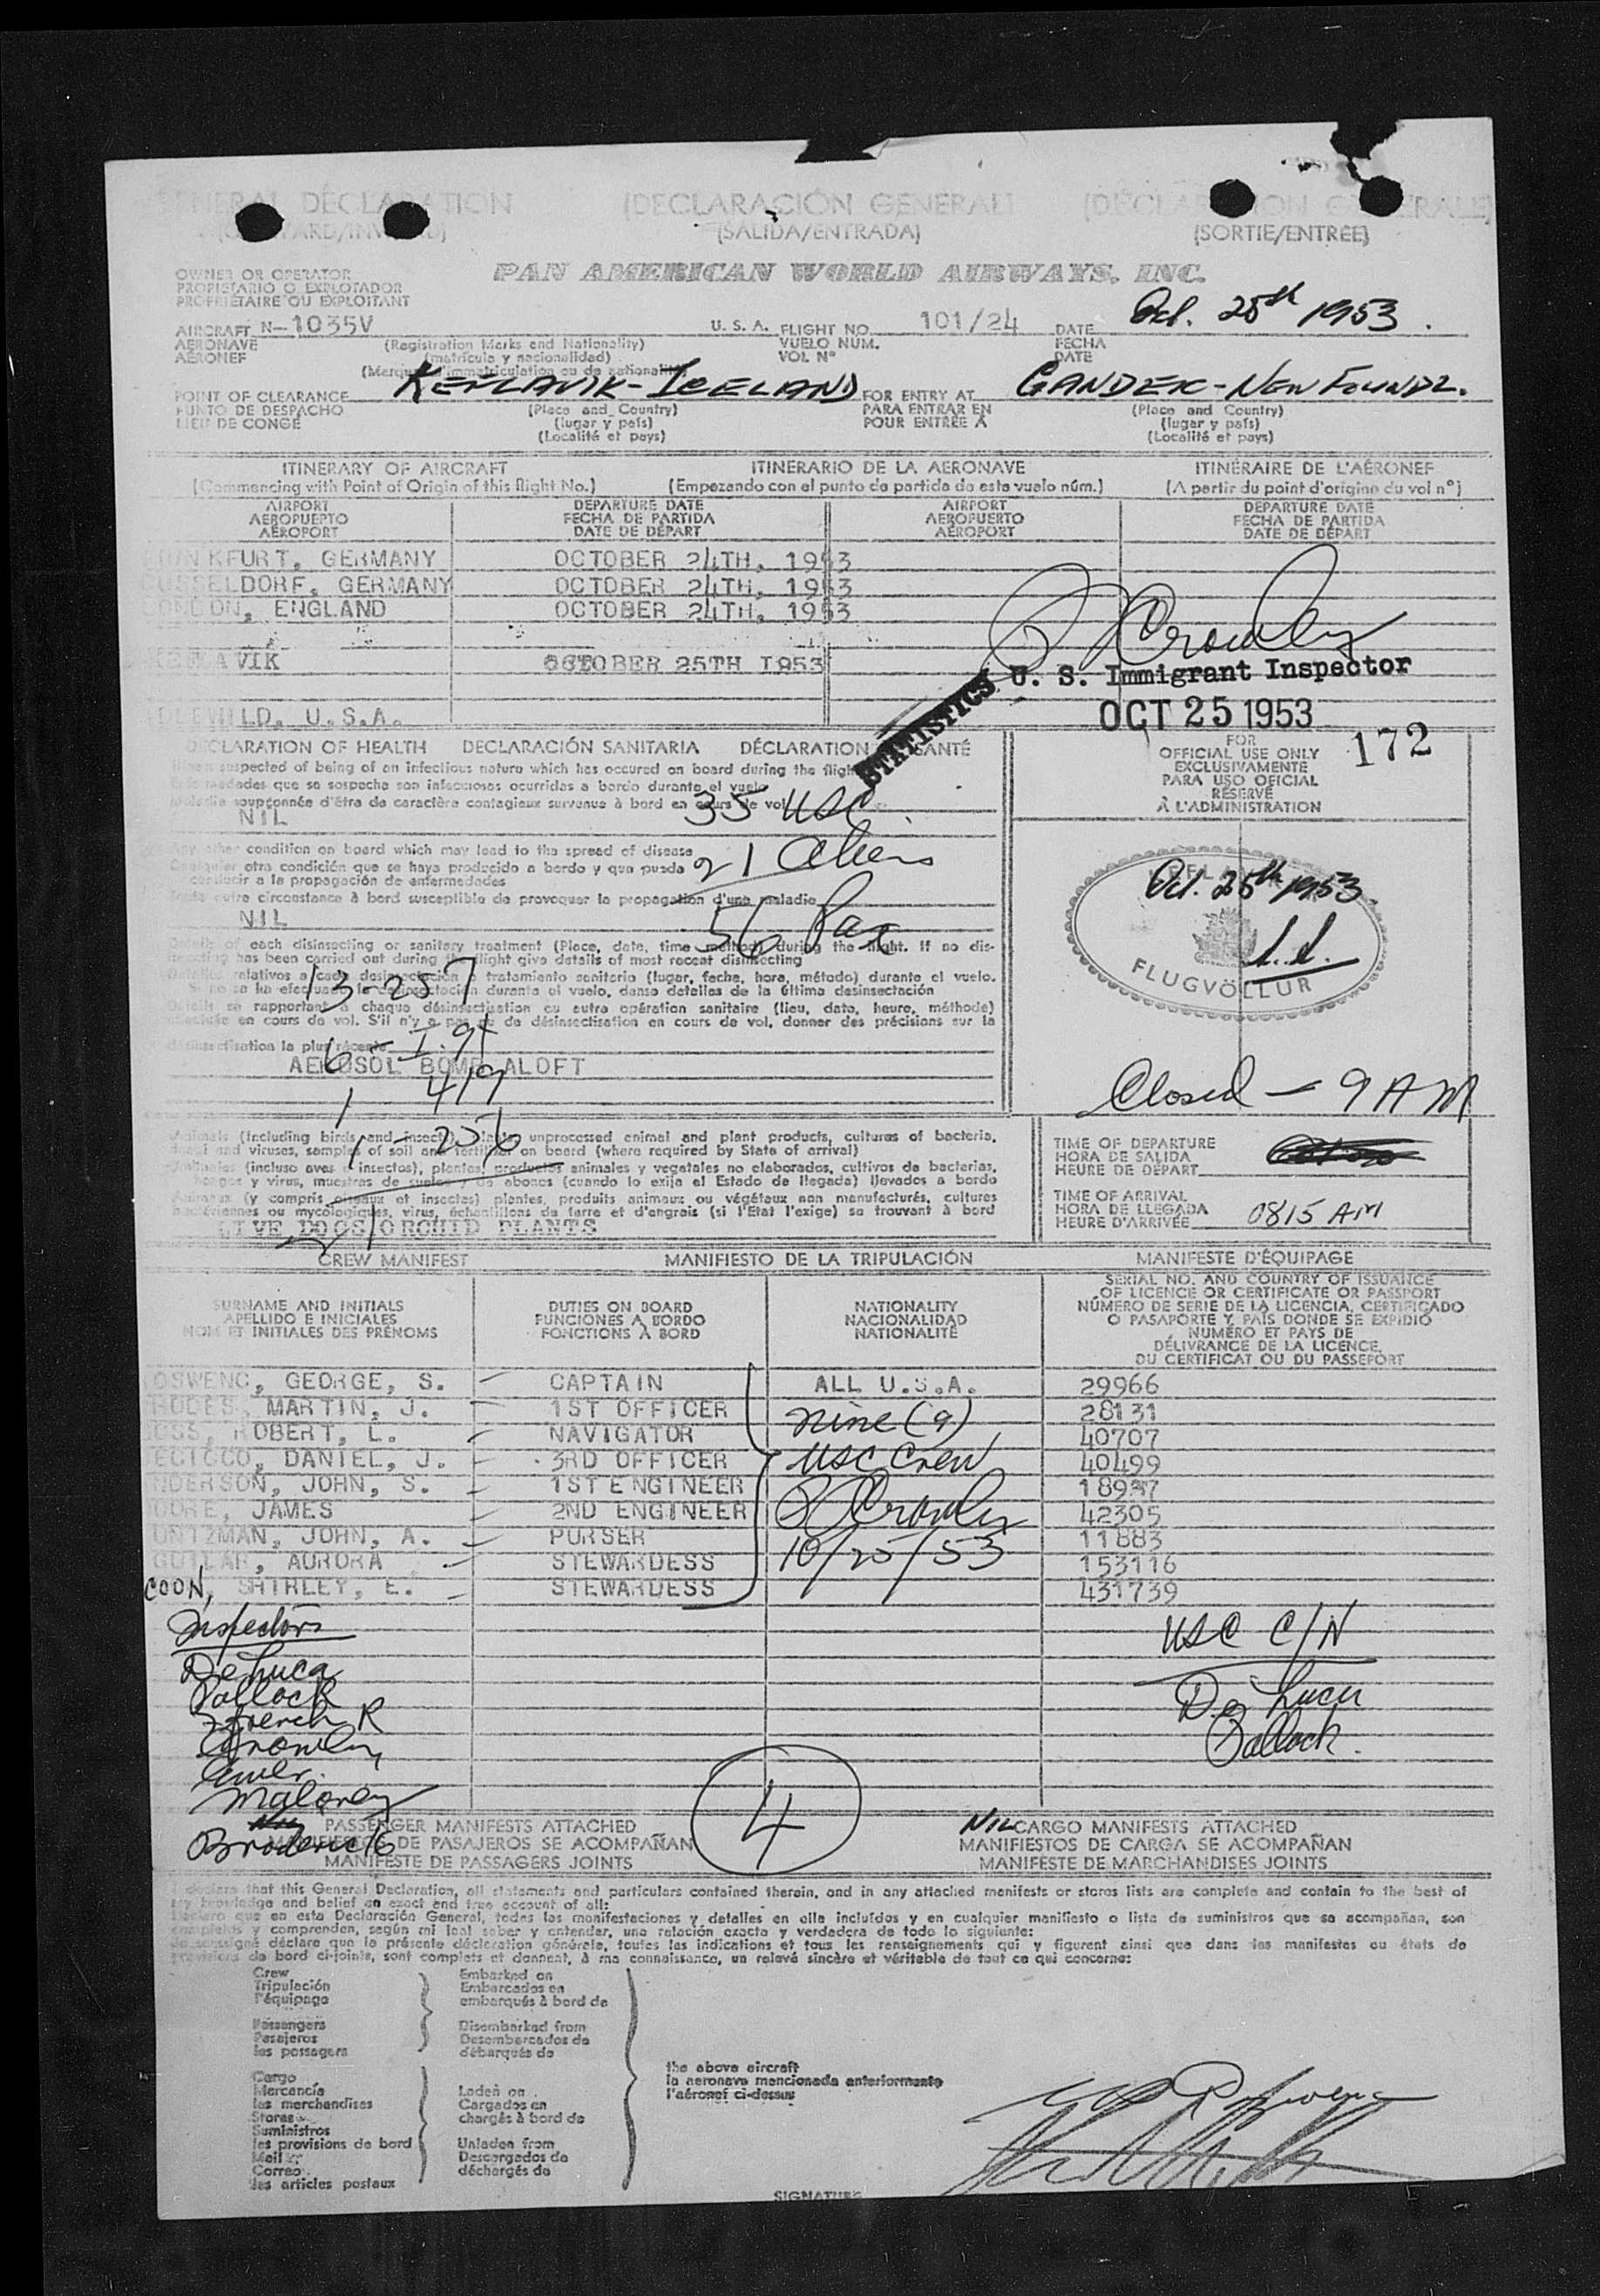 GENERAL DÉCLARATION (DECLARACIÓN GENERAL) (DÉCLARATION GÉNÉRALE)
(SALIDA/ENTRADA) (SORTIE/ENTRÉE)
OWNER OR OPERATOR
PROPIETARIO O EXPLOTADOR
PROPRIÉTAIRE OU EXPLOITANT
PAN AMERICAN WORLD AIRWAYS, INC.
AIRCRAFT N-1035V U. S. A. FLIGHT NO. 101/24 DATE Oct. 25th 1953.
AERONAVE (Registration Marks and Nationality) VUELO NÚM. FECHA
AÉRONEF (matrícula y nacionalidad) VOL Nº DATE
(Marques d'immatriculation ou de nationalité)
POINT OF CLEARANCE KEFLAVIK-ICELAND FOR ENTRY AT GANDER-NEW FOUNDL.
PUNTO DE DESPACHO (Place and Country) PARA ENTRAR EN (Place and Country)
LIEU DE CONGÉ (lugar y país) POUR ENTRÉE À (lugar y país)
(Localité et pays) (Localité et pays)
ITINERARY OF AIRCRAFT ITINERARIO DE LA AERONAVE ITINÉRAIRE DE L'AÉRONEF
(Commencing with Point of Origin of this flight No.) (Empezando con el punto de partida de este vuelo núm.) (A partir du point d'origine du vol nº)
AIRPORT DEPARTURE DATE AIRPORT DEPARTURE DATE
AEROPUERTO FECHA DE PARTIDA AEROPUERTO FECHA DE PARTIDA
AÉROPORT DATE DE DÉPART AÉROPORT DATE DE DÉPART
KFURT, GERMANY OCTOBER 24TH, 1953
SSELDORF, GERMANY OCTOBER 24TH, 1953
ONDON, ENGLAND OCTOBER 24TH, 1953
AVIK OCTOBER 25TH 1953
DLEWILD, U.S.A.
Crowley
U. S. Immigrant Inspector
OCT 25 1953
STATISTICS
172
DECLARATION OF HEALTH DECLARACIÓN SANITARIA DÉCLARATION SANTÉ
suspected of being of an infectious nature which has occured on board during the flight
que se sospecha son infecciosas ocurridas a bordo durante el vuelo
soupçonnée d'être de caractère contagieux survenue à bord en cours de vol
NIL
35 USC
Any other condition on board which may lead to the spread of disease
Cualquier otra condición que se haya producido a bordo y que pueda
conducir a la propagación de enfermedades
Toute autre circonstance à bord susceptible de provoquer la propagation d'une maladie
NIL
21 Aliens
56 Pax
Details of each disinsecting or sanitary treatment (Place, date, time method) during the flight. If no dis-
insecting has been carried out during the flight give details of most recent disinsecting
Detalles relativos a cada desinsectación o tratamiento sanitario (lugar, fecha, hora, método) durante el vuelo.
Si no se ha efectuado la desinsectación durante el vuelo, danse detalles de la última desinsectación
Détails se rapportant à chaque désinsectisation ou autre opération sanitaire (lieu, date, heure, méthode)
en cours de vol. S'il n'y a pas eu de désinsectisation en cours de vol, donner des précisions sur la
désinsectisation la plus récente
AEROSOL BOMB ALOFT
13-257
6-I.94
1 419
1 - 256
FOR
OFFICIAL USE ONLY
EXCLUSIVAMENTE
PARA USO OFICIAL
RESERVÉ
À L'ADMINISTRATION
Oct. 25th 1953.
FLUGVÖLLUR
Closed - 9 AM
Animals (including birds and insects), plants, unprocessed animal and plant products, cultures of bacteria,
fungi and viruses, samples of soil and fertilizer on board (where required by State of arrival)
Animales (incluso aves e insectos), plantas, productos animales y vegetales no elaborados, cultivos de bacterias,
hongos y virus, muestras de suelos y de abonos (cuando lo exija el Estado de llegada) llevados a bordo
Animaux (y compris oiseaux et insectes) plantes, produits animaux ou végétaux non manufacturés, cultures
bactériennes ou mycologiques, virus, échantillons de terre et d'engrais (si l'Etat l'exige) se trouvant à bord
LIVE DOGS/ORCHID PLANTS
21
TIME OF DEPARTURE
HORA DE SALIDA
HEURE DE DÉPART
TIME OF ARRIVAL
HORA DE LLEGADA
HEURE D'ARRIVÉE 0815 AM
CREW MANIFEST MANIFIESTO DE LA TRIPULACIÓN MANIFESTE D'ÉQUIPAGE
SURNAME AND INITIALS DUTIES ON BOARD NATIONALITY SERIAL NO. AND COUNTRY OF ISSUANCE
APELLIDO E INICIALES FUNCIONES A BORDO NACIONALIDAD OF LICENCE OR CERTIFICATE OR PASSPORT
NOM ET INITIALES DES PRÉNOMS FONCTIONS À BORD NATIONALITÉ NÚMERO DE SERIE DE LA LICENCIA, CERTIFICADO
O PASAPORTE Y PAÍS DONDE SE EXPIDIÓ
NUMÉRO ET PAYS DE
DÉLIVRANCE DE LA LICENCE,
DU CERTIFICAT OU DU PASSEPORT
OSWENC, GEORGE, S. CAPTAIN ALL U.S.A. 29966
HODES, MARTIN, J. 1ST OFFICER nine (9) 28131
OSS, ROBERT, L. NAVIGATOR 40707
ECICCO, DANIEL, J. 3RD OFFICER USC Crew 40499
NDERSON, JOHN, S. 1ST ENGINEER 18937
OORE, JAMES 2ND ENGINEER Crowley 42305
UNTZMAN, JOHN, A. PURSER 11883
GUILAR, AURORA STEWARDESS 10/25/53 153116
COON, SHIRLEY, E. STEWARDESS 431739
Inspectors
USC C/N
DeLuca
Pallock
French R
Crowley
Maloney
Broderick
De Luca
Pallock.
PASSENGER MANIFESTS ATTACHED 4 NIL CARGO MANIFESTS ATTACHED
MANIFIESTOS DE PASAJEROS SE ACOMPAÑAN MANIFIESTOS DE CARGA SE ACOMPAÑAN
MANIFESTE DE PASSAGERS JOINTS MANIFESTE DE MARCHANDISES JOINTS
I declare that this General Declaration, all statements and particulars contained therein, and in any attached manifests or stores lists are complete and contain to the best of
my knowledge and belief an exact and true account of all:
Declaro que en esta Declaración General, todas las manifestaciones y detalles en ella incluídos y en cualquier manifiesto o lista de suministros que se acompañan, son
completos y comprenden, según mi leal saber y entender, una relación exacta y verdadera de todo lo siguiente:
Je soussigné déclare que la présente déclaration générale, toutes les indications et tous les renseignements qui y figurent ainsi que dans les manifestes ou états de
provisions de bord ci-joints, sont complets et donnent, à ma connaissance, un relevé sincère et véritable de tout ce qui concerne:
Crew Embarked on
Tripulación Embarcados en
l'équipage embarqués à bord de
Passengers Disembarked from
Pasajeros Desembarcados de
les passagers débarqués de
the above aircraft
la aeronave mencionada anteriormente
l'aéronef ci-dessus
Cargo
Mercancía Laden on
les marchandises Cargados en
Stores chargés à bord de
Suministros
les provisions de bord Unladen from
Mail Descargados de
Correo déchargés de
les articles postaux
SIGNATURE